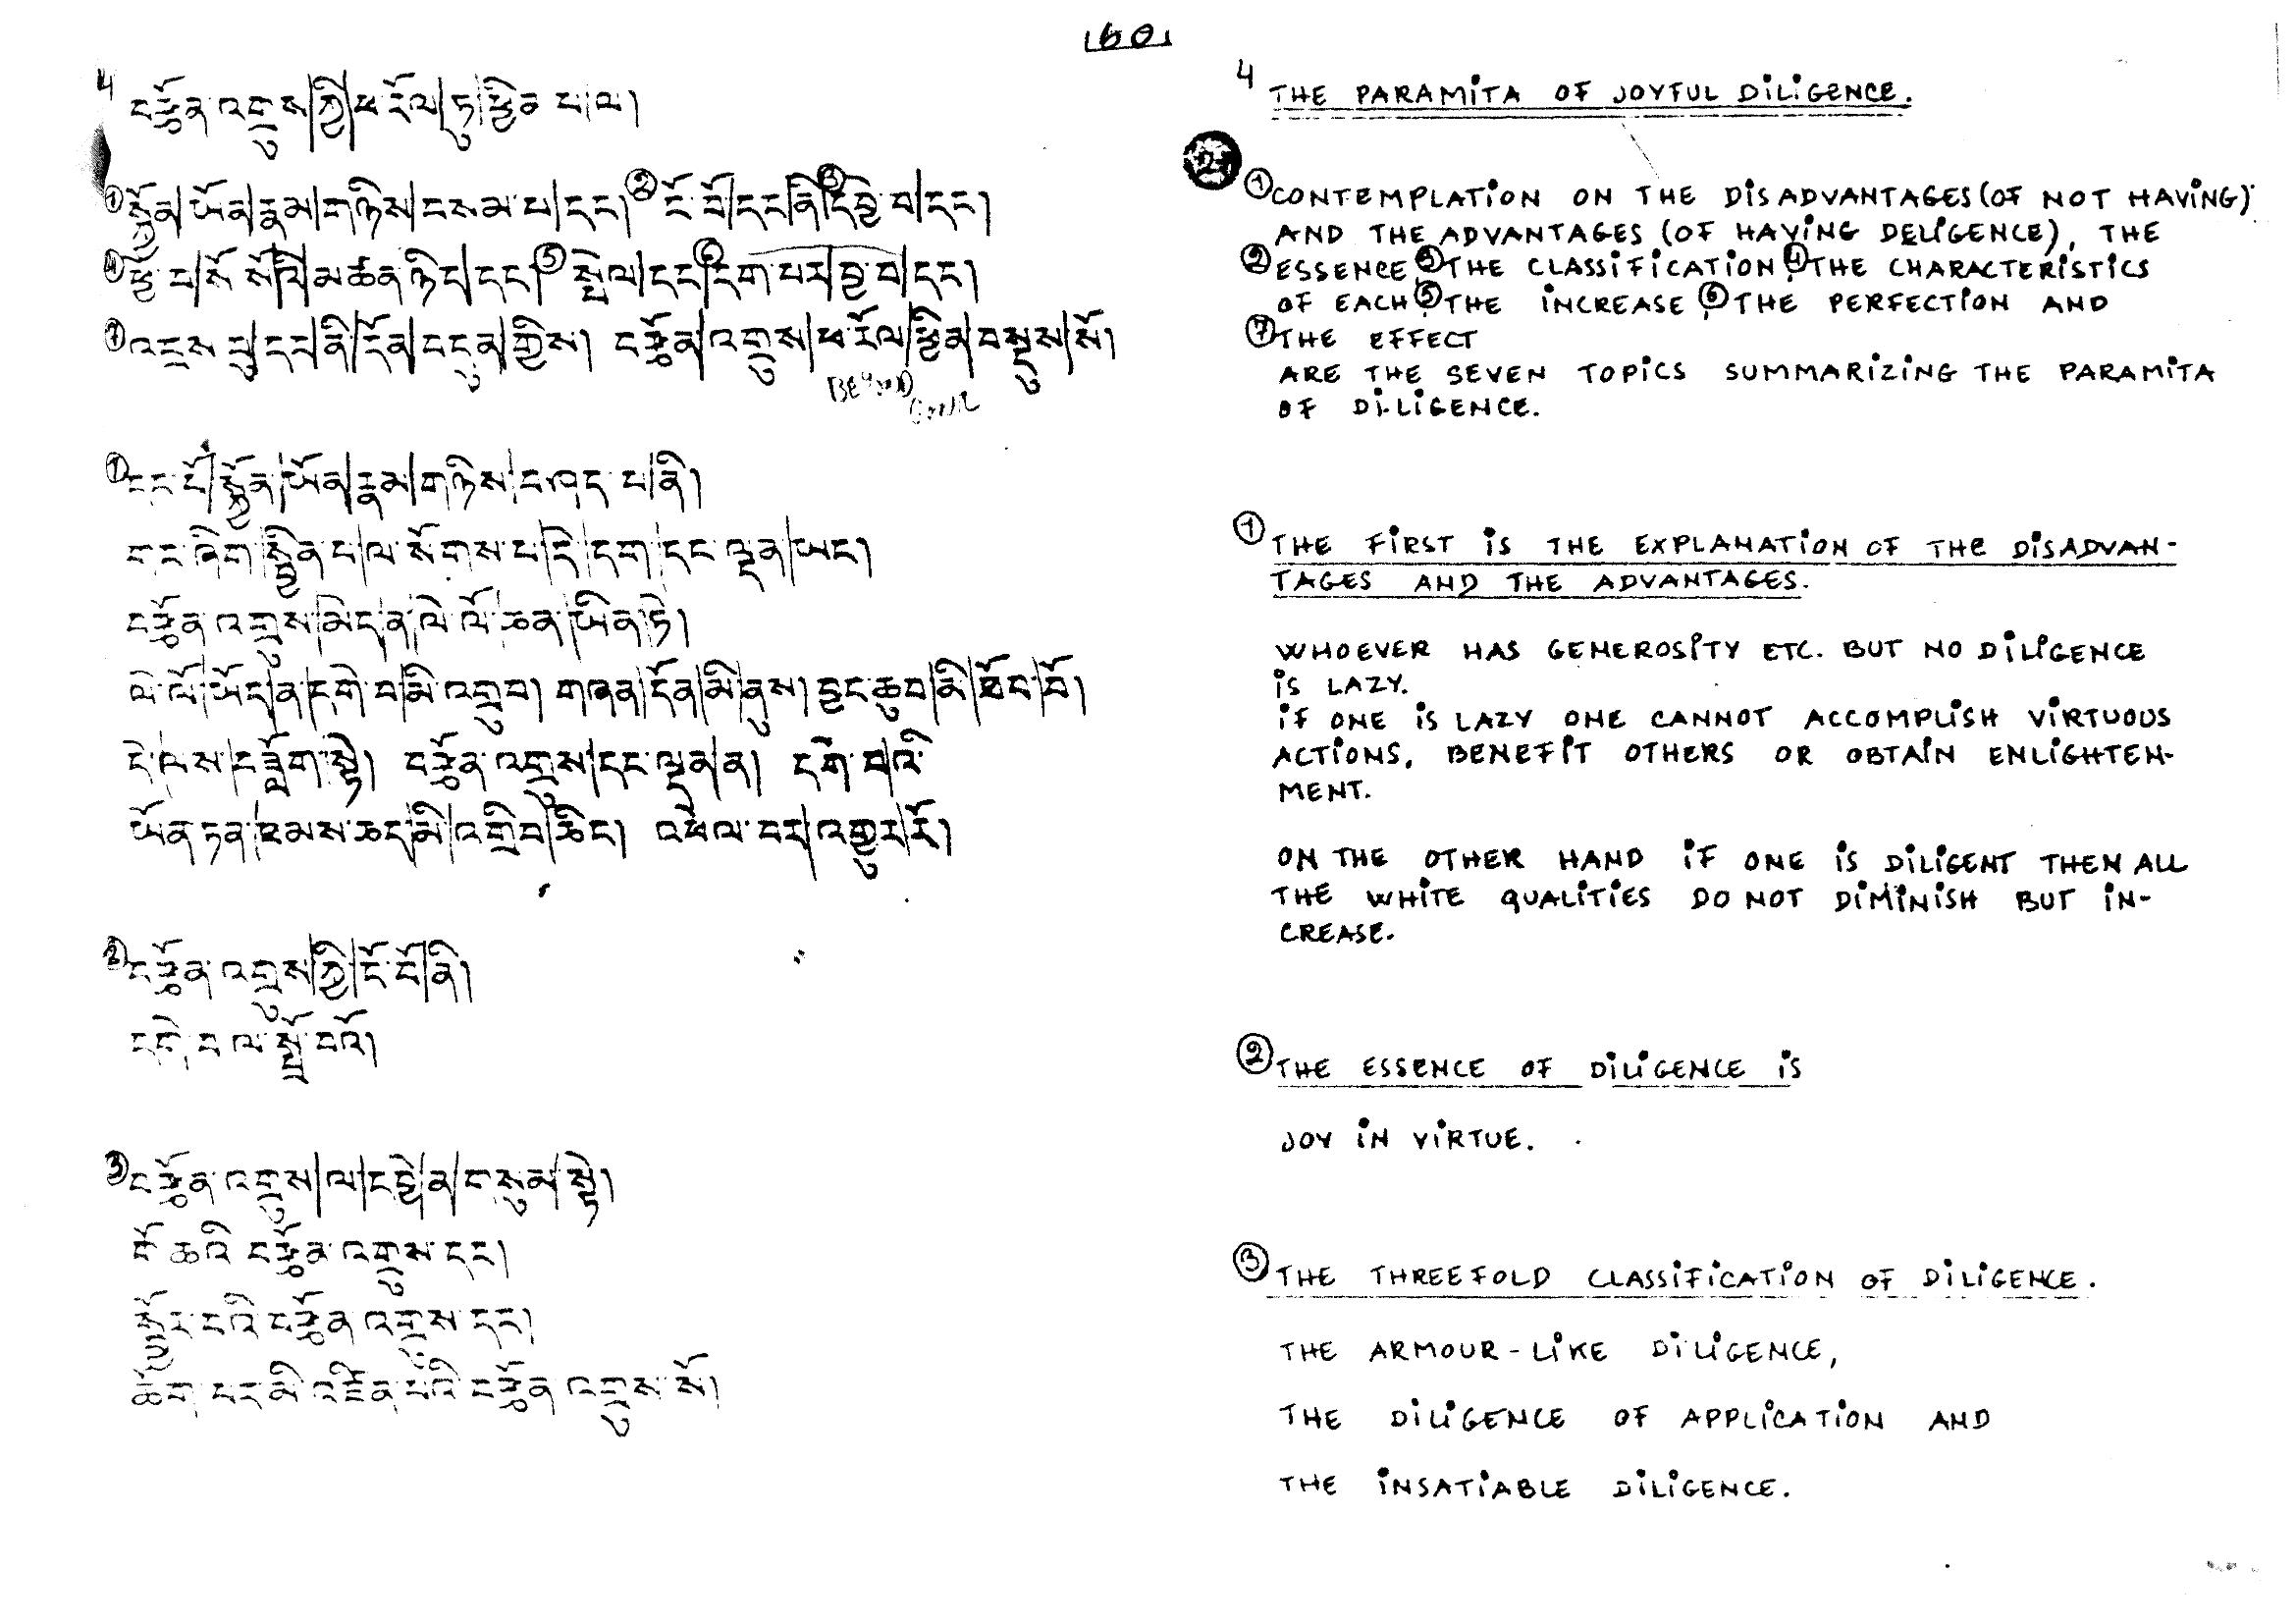 160
4 བརྩོན་འགྲུས་ཀྱི་ཕ་རོལ་ཏུ་ཕྱིན་པ་ལ།
① སྐྱོན་ཡོན་རྣམ་གཉིས་བསམ་པ་དང་། ② ངོ་བོ་དང་ནི་③དབྱེ་བ་དང་།
④ ཕྱེ་བ་སོ་སོའི་མཚན་ཉིད་དང་། ⑤ སྤེལ་དང་⑥དག་པར་བྱ་བ་དང་།
⑦ འབྲས་བུ་དང་ནི་དོན་བདུན་གྱིས། བརྩོན་འགྲུས་ཕ་རོལ་ཕྱིན་བསྡུས་སོ།
BEYOND
① དང་པོ་སྐྱོན་ཡོན་རྣམ་གཉིས་བཤད་པ་ནི།
གང་ཞིག་སྦྱིན་པ་ལ་སོགས་པ་དེ་དག་དང་ལྡན་ཡང་།
བརྩོན་འགྲུས་མེད་ན་ལེ་ལོ་ཅན་ཡིན་ཏེ།
ལེ་ལོ་ཡོད་ན་དགེ་བ་མི་འགྲུབ། གཞན་དོན་མི་ནུས། བྱང་ཆུབ་མི་ཐོབ་བོ།
དེ་ལས་བཟློག་སྟེ། བརྩོན་འགྲུས་དང་ལྡན་ན། དཀེ་བའི་
ཡོན་ཏན་ཐམས་ཅད་མི་འགྲིབ་ཅིང་། འཕེལ་བར་འགྱུར་རོ།
② བརྩོན་འགྲུས་ཀྱི་ངོ་བོ་ནི།
དགེ་བ་ལ་སྤྲོ་བའོ།
③ བརྩོན་འགྲུས་ལ་དབྱེ་ན་གསུམ་སྟེ།
གོ་ཆའི་བརྩོན་འགྲུས་དང་།
སྦྱོར་བའི་བརྩོན་འགྲུས་དང་།
ཆོག་པར་མི་འཛིན་པའི་བརྩོན་འགྲུས་སོ།
4 THE PARAMITA OF JOYFUL DILIGENCE.
① CONTEMPLATION ON THE DISADVANTAGES (OF NOT HAVING)
AND THE ADVANTAGES (OF HAVING DELIGENCE), THE
② ESSENCE ③ THE CLASSIFICATION ④ THE CHARACTERISTICS
OF EACH ⑤ THE INCREASE ⑥ THE PERFECTION AND
⑦ THE EFFECT
ARE THE SEVEN TOPICS SUMMARIZING THE PARAMITA
OF DILIGENCE.
① THE FIRST IS THE EXPLANATION OF THE DISADVAN-
TAGES AND THE ADVANTAGES.
WHOEVER HAS GENEROSITY ETC. BUT NO DILIGENCE
IS LAZY.
IF ONE IS LAZY ONE CANNOT ACCOMPLISH VIRTUOUS
ACTIONS, BENEFIT OTHERS OR OBTAIN ENLIGHTEN-
MENT.
ON THE OTHER HAND IF ONE IS DILIGENT THEN ALL
THE WHITE QUALITIES DO NOT DIMINISH BUT IN-
CREASE.
② THE ESSENCE OF DILIGENCE IS
JOY IN VIRTUE.
③ THE THREEFOLD CLASSIFICATION OF DILIGENCE.
THE ARMOUR-LIKE DILIGENCE,
THE DILIGENCE OF APPLICATION AND
THE INSATIABLE DILIGENCE.